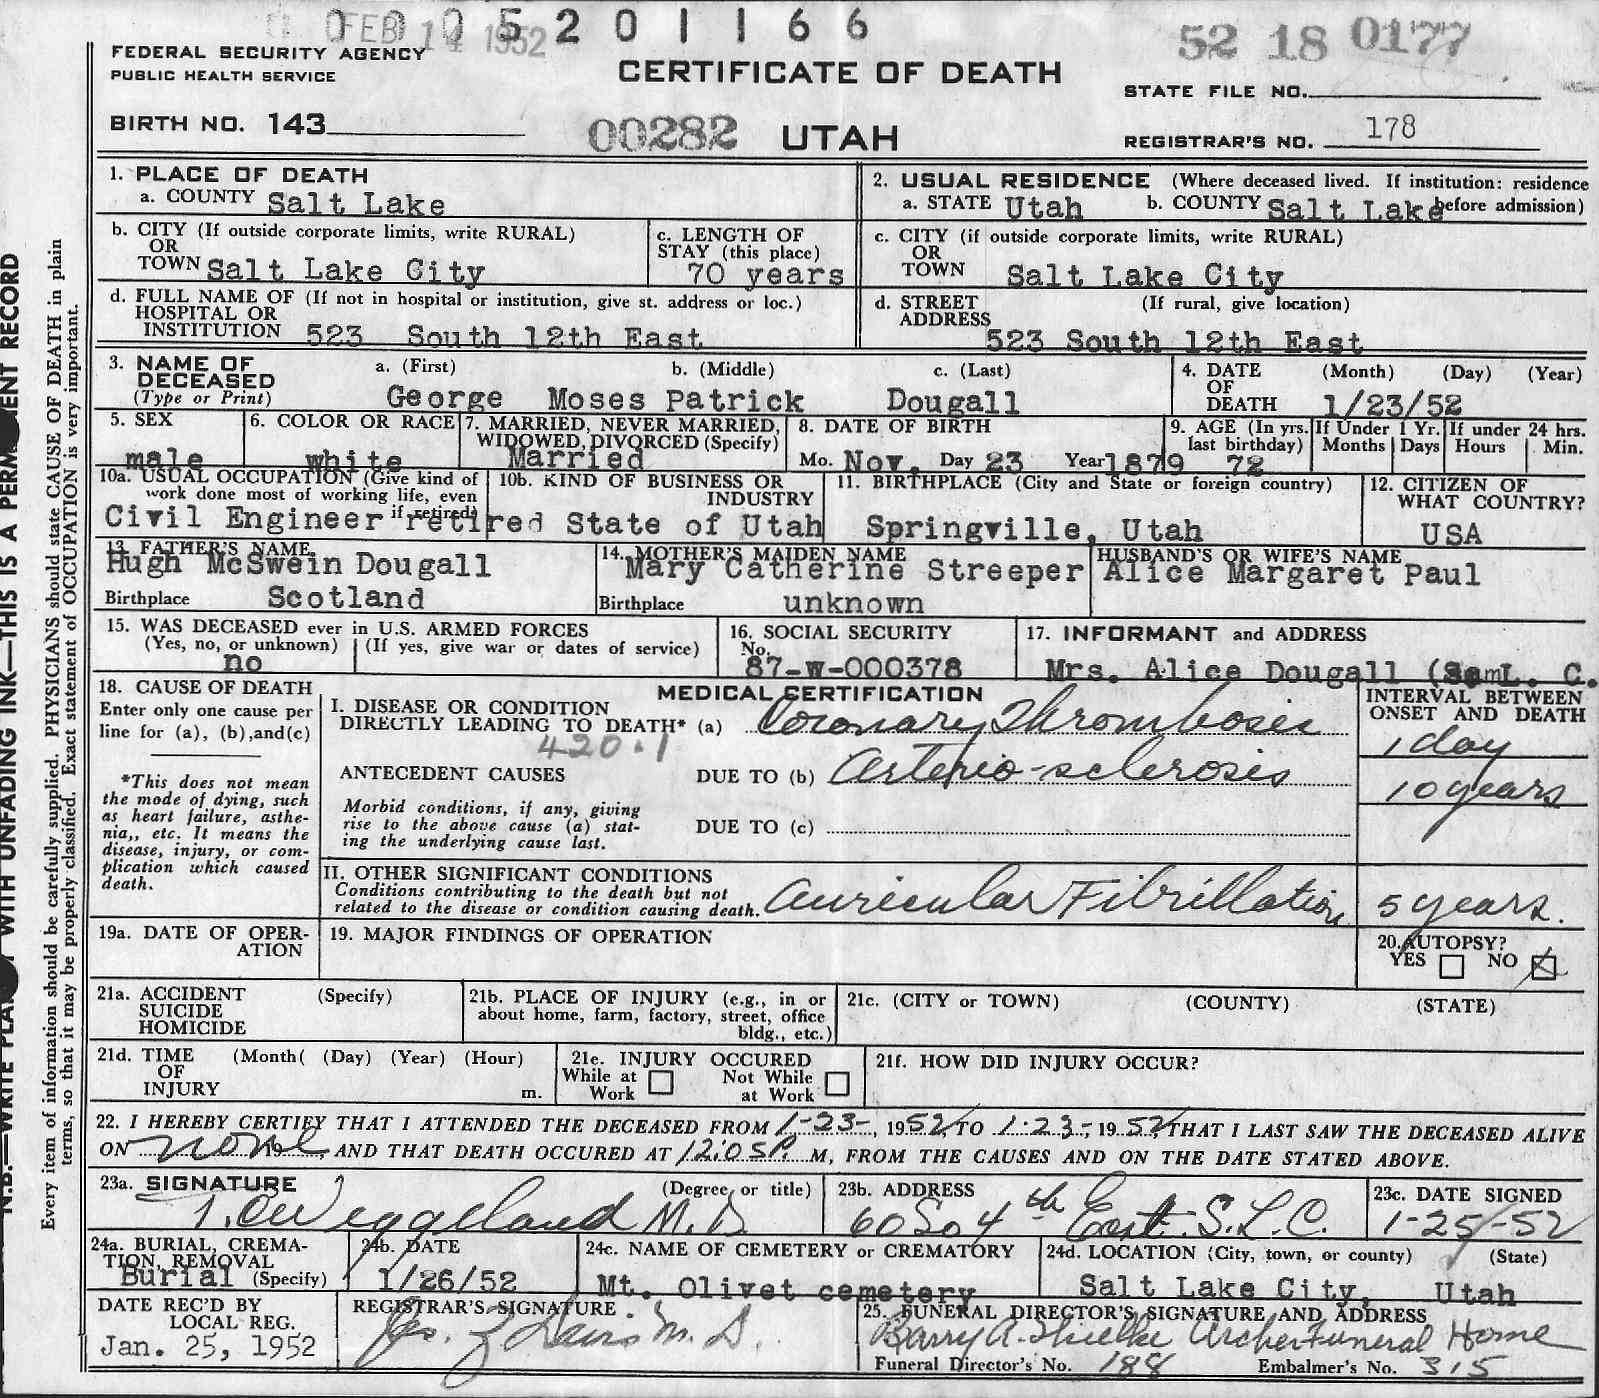 0 0 0 5 2 0 1 1 6 6
FEB 14 1952
52 18 0177
FEDERAL SECURITY AGENCY
PUBLIC HEALTH SERVICE
CERTIFICATE OF DEATH
STATE FILE NO.
BIRTH NO. 143
00282 UTAH
REGISTRAR'S NO. 178
1. PLACE OF DEATH
a. COUNTY Salt Lake
2. USUAL RESIDENCE (Where deceased lived. If institution: residence before admission)
a. STATE Utah b. COUNTY Salt Lake
b. CITY (If outside corporate limits, write RURAL)
OR
TOWN Salt Lake City
c. LENGTH OF
STAY (this place)
70 years
c. CITY (if outside corporate limits, write RURAL)
OR
TOWN Salt Lake City
d. FULL NAME OF (If not in hospital or institution, give st. address or loc.)
HOSPITAL OR
INSTITUTION 523 South 12th East
d. STREET (If rural, give location)
ADDRESS
523 South 12th East
3. NAME OF
DECEASED
(Type or Print)
a. (First) b. (Middle) c. (Last)
George Moses Patrick Dougall
4. DATE (Month) (Day) (Year)
OF
DEATH 1/23/52
5. SEX
male
6. COLOR OR RACE
white
7. MARRIED, NEVER MARRIED,
WIDOWED, DIVORCED (Specify)
Married
8. DATE OF BIRTH
Mo. Nov. Day 23 Year 1879
9. AGE (In yrs.
last birthday)
72
If Under 1 Yr.
Months Days
If under 24 hrs.
Hours Min.
10a. USUAL OCCUPATION (Give kind of
work done most of working life, even
if retired)
Civil Engineer retired
10b. KIND OF BUSINESS OR
INDUSTRY
State of Utah
11. BIRTHPLACE (City and State or foreign country)
Springville, Utah
12. CITIZEN OF
WHAT COUNTRY?
USA
13. FATHER'S NAME
Hugh McSwein Dougall
Birthplace Scotland
14. MOTHER'S MAIDEN NAME
Mary Catherine Streeper
Birthplace unknown
HUSBAND'S OR WIFE'S NAME
Alice Margaret Paul
15. WAS DECEASED ever in U.S. ARMED FORCES
(Yes, no, or unknown) (If yes, give war or dates of service)
no
16. SOCIAL SECURITY
No.
87-W-000378
17. INFORMANT and ADDRESS
Mrs. Alice Dougall L. C.
18. CAUSE OF DEATH
Enter only one cause per
line for (a), (b), and (c)
*This does not mean
the mode of dying, such
as heart failure, asthe-
nia,, etc. It means the
disease, injury, or com-
plication which caused
death.
MEDICAL CERTIFICATION
INTERVAL BETWEEN
ONSET AND DEATH
I. DISEASE OR CONDITION
DIRECTLY LEADING TO DEATH* (a) Coronary Thrombosis 1 day
420.1
ANTECEDENT CAUSES DUE TO (b) Arterio-sclerosis 10 years
Morbid conditions, if any, giving
rise to the above cause (a) stat-
ing the underlying cause last.
DUE TO (c)
II. OTHER SIGNIFICANT CONDITIONS
Conditions contributing to the death but not
related to the disease or condition causing death.
Auricular Fibrillation 5 years.
19a. DATE OF OPER-
ATION
19. MAJOR FINDINGS OF OPERATION
20. AUTOPSY?
YES NO
21a. ACCIDENT (Specify)
SUICIDE
HOMICIDE
21b. PLACE OF INJURY (e.g., in or
about home, farm, factory, street, office
bldg., etc.)
21c. (CITY or TOWN) (COUNTY) (STATE)
21d. TIME (Month( (Day) (Year) (Hour)
OF
INJURY m.
21e. INJURY OCCURED
While at Work Not While at Work
21f. HOW DID INJURY OCCUR?
22. I HEREBY CERTIFY THAT I ATTENDED THE DECEASED FROM 1-23-, 1952, TO 1-23-, 1952, THAT I LAST SAW THE DECEASED ALIVE
ON none 19 AND THAT DEATH OCCURED AT 12:05 P. M, FROM THE CAUSES AND ON THE DATE STATED ABOVE.
23a. SIGNATURE (Degree or title)
M.D.
23b. ADDRESS
60 So 4th East S.L.C.
23c. DATE SIGNED
1-25-52
24a. BURIAL, CREMA-
TION, REMOVAL
Burial (Specify)
24b. DATE
1/26/52
24c. NAME OF CEMETERY or CREMATORY
Mt. Olivet cemetery
24d. LOCATION (City, town, or county) (State)
Salt Lake City, Utah
DATE REC'D BY
LOCAL REG.
Jan. 25, 1952
REGISTRAR'S SIGNATURE
M.D.
25. FUNERAL DIRECTOR'S SIGNATURE AND ADDRESS
Archer Funeral Home
Funeral Director's No. 188 Embalmer's No. 315
WITH UNFADING INK—THIS IS A
Every item of information should be carefully supplied. PHYSICIANS should state CAUSE OF DEATH in plain
terms, so that it may be properly classified. Exact statement of OCCUPATION is very important.